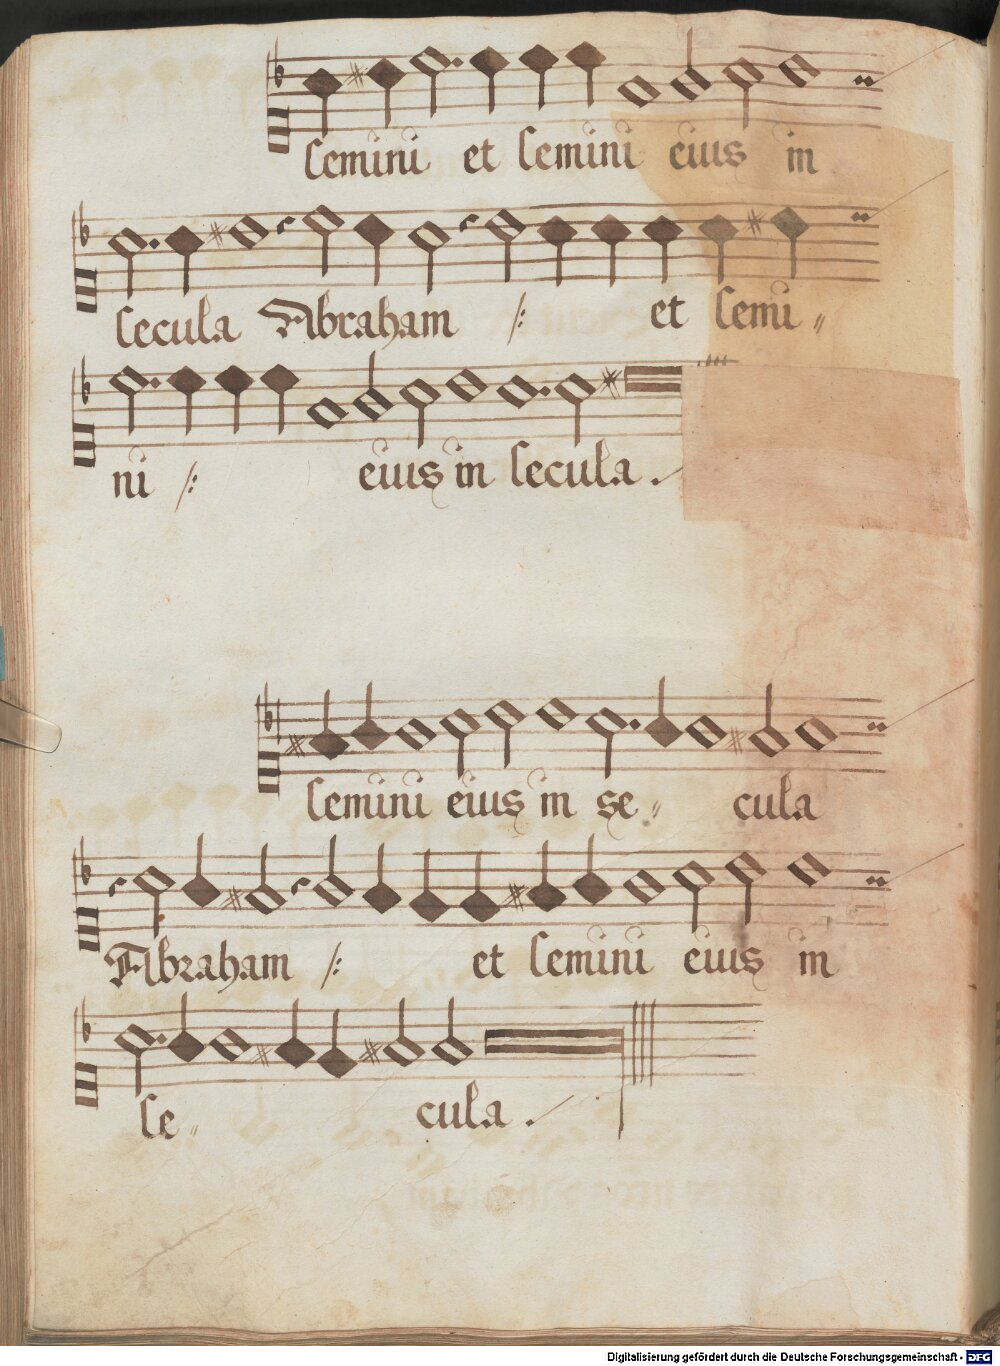 Semini et Semini eius in
Secula Abraham /: et Semi〃
ni /: eius in Secula .
Semini eius in se〃 cula
Abraham /: et Semini eius in
Se〃 cula .
Digitalisierung gefördert durch die Deutsche Forschungsgemeinschaft - DFG